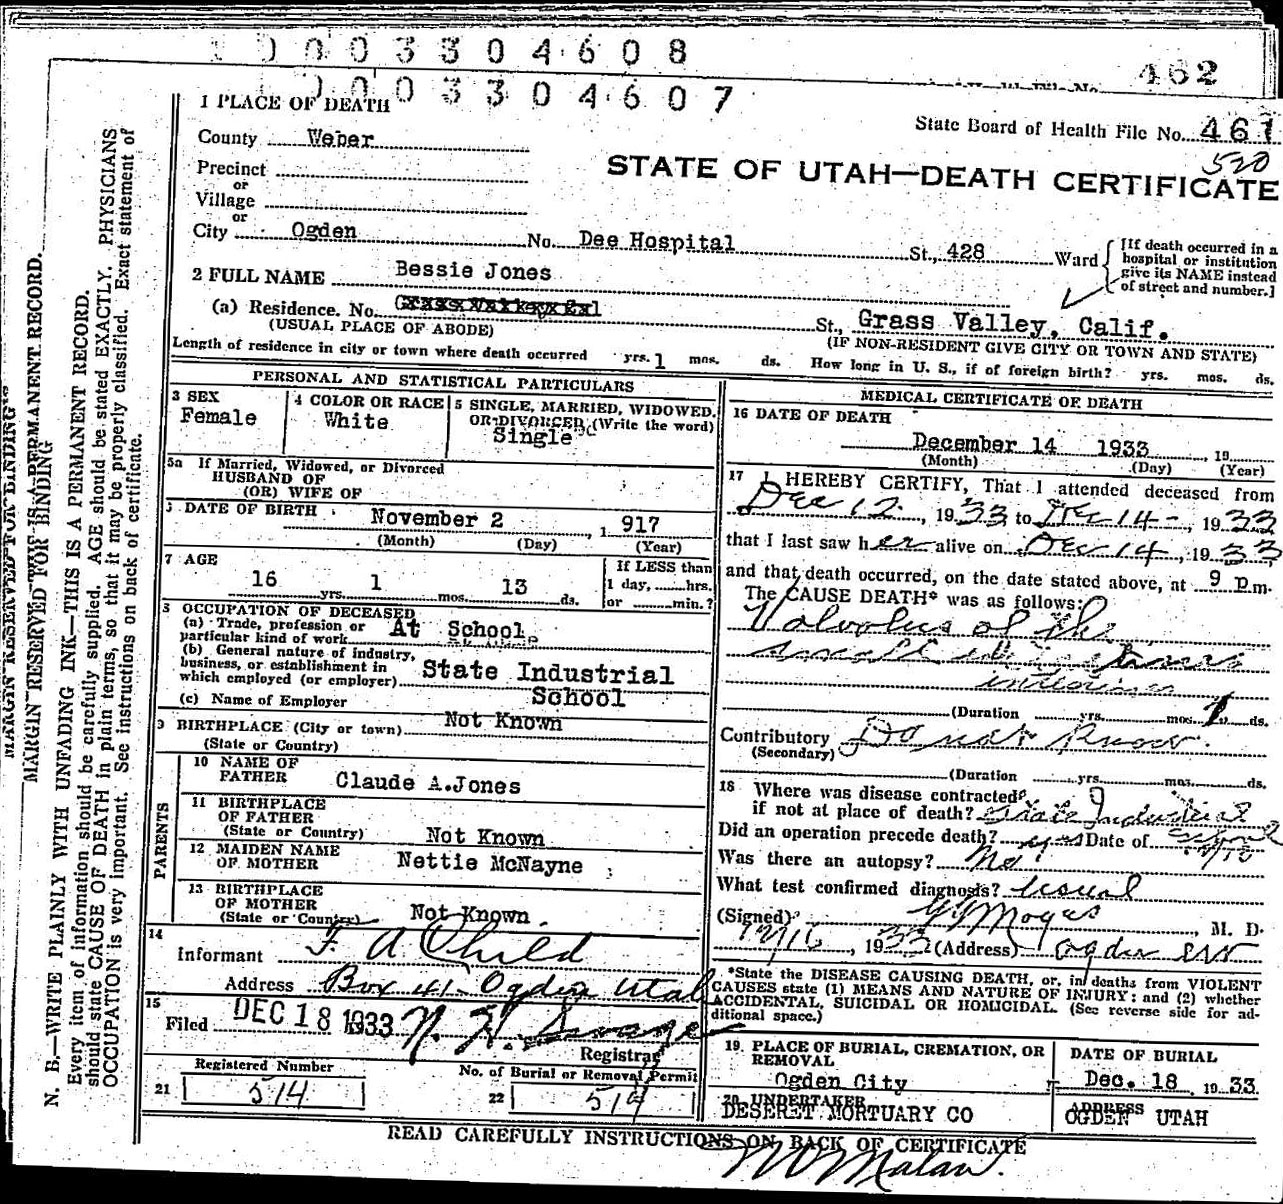 0003304608
462
0003304607
1 PLACE OF DEATH
State Board of Health File No. 461
County Weber
520
STATE OF UTAH—DEATH CERTIFICATE
Precinct
or
Village
or
City Ogden No. Dee Hospital St., 428 Ward
[If death occurred in a
hospital or institution
give its NAME instead
of street and number.]
2 FULL NAME Bessie Jones
(a) Residence. No. St., Grass Valley, Calif.
(USUAL PLACE OF ABODE) (IF NON-RESIDENT GIVE CITY OR TOWN AND STATE)
Length of residence in city or town where death occurred yrs. 1 mos. ds. How long in U. S., if of foreign birth? yrs. mos. ds.
PERSONAL AND STATISTICAL PARTICULARS
3 SEX
Female
4 COLOR OR RACE
White
5 SINGLE, MARRIED, WIDOWED,
OR DIVORCED (Write the word)
Single
5a If Married, Widowed, or Divorced
HUSBAND OF
(OR) WIFE OF
DATE OF BIRTH November 2, 1917
(Month) (Day) (Year)
7 AGE
16 yrs. 1 mos. 13 ds.
If LESS than
1 day, hrs.
or min.?
OCCUPATION OF DECEASED
(a) Trade, profession or
particular kind of work At School
(b) General nature of industry,
business, or establishment in
which employed (or employer) State Industrial
(c) Name of Employer School
9 BIRTHPLACE (City or town) Not Known
(State or Country)
PARENTS
10 NAME OF
FATHER Claude A. Jones
11 BIRTHPLACE
OF FATHER
(State or Country) Not Known
12 MAIDEN NAME
OF MOTHER Nettie McNayne
13 BIRTHPLACE
OF MOTHER
(State or Country) Not Known
14
Informant F. A Child
Address Box 41- Ogden Utah
15
Filed DEC 18 1933
Registrar
Registered Number
21 514
No. of Burial or Removal Permit
22 514
MEDICAL CERTIFICATE OF DEATH
16 DATE OF DEATH
December 14 1933, 19
(Month) (Day) (Year)
17 I HEREBY CERTIFY, That I attended deceased from
Dec 12, 1933 to Dec 14-, 1933
that I last saw her alive on Dec 14, 1933
and that death occurred, on the date stated above, at 9 p.m.
The CAUSE DEATH* was as follows:
Volvolus of the
small
(Duration yrs. mos. ds.
Contributory Do not know.
(Secondary)
(Duration yrs. mos. ds.
18 Where was disease contracted
if not at place of death? State Industrial
Did an operation precede death? yes Date of
Was there an autopsy? No
What test confirmed diagnosis? Usual
(Signed) M. D.
12/16, 1933 (Address) Ogden
*State the DISEASE CAUSING DEATH, or, in deaths from VIOLENT
CAUSES state (1) MEANS AND NATURE OF INJURY: and (2) whether
ACCIDENTAL, SUICIDAL OR HOMICIDAL. (See reverse side for ad-
ditional space.)
19. PLACE OF BURIAL, CREMATION, OR
REMOVAL
Ogden City
DATE OF BURIAL
Dec. 18, 1933
20 UNDERTAKER
DESERET MORTUARY CO
ADDRESS
OGDEN UTAH
READ CAREFULLY INSTRUCTIONS ON BACK OF CERTIFICATE
MARGIN RESERVED FOR BINDING
N. B.—WRITE PLAINLY WITH UNFADING INK—THIS IS A PERMANENT RECORD.
Every item of information should be carefully supplied. AGE should be stated EXACTLY. PHYSICIANS
should state CAUSE OF DEATH in plain terms, so that it may be properly classified. Exact statement of
OCCUPATION is very important. See instructions on back of certificate.